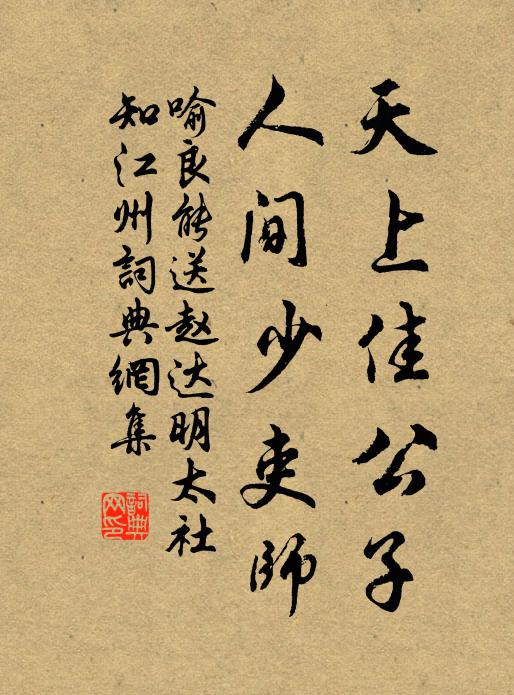 天上佳公子
人间少吏师
喻良能送赵达明太社
知江州詞典網集
詞典網印